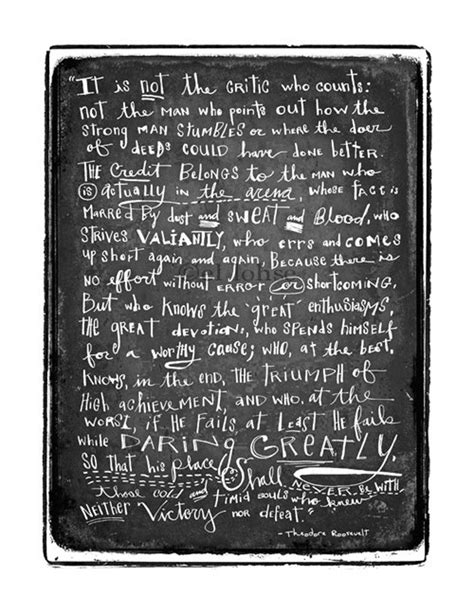 "It is not the critic who counts:
not the man who points out how the
strong man stumbles or where the doer
of deeds could have done better.
The credit belongs to the man who
is actually in the arena, whose face is
marred by dust and sweat and blood, who
strives valiantly, who errs and comes
up short again and again, because there is
no effort without error or shortcoming,
But who knows the 'great' enthusiasms,
the great devotions, who spends himself
for a worthy cause; who, at the best,
knows, in the end, the triumph of
high achievement, and who, at the
worst, if he fails, at least he fails
while DARING GREATLY,
so that his place shall
never be with
those cold and timid souls who knew
neither victory nor defeat."
- Theodore Roosevelt